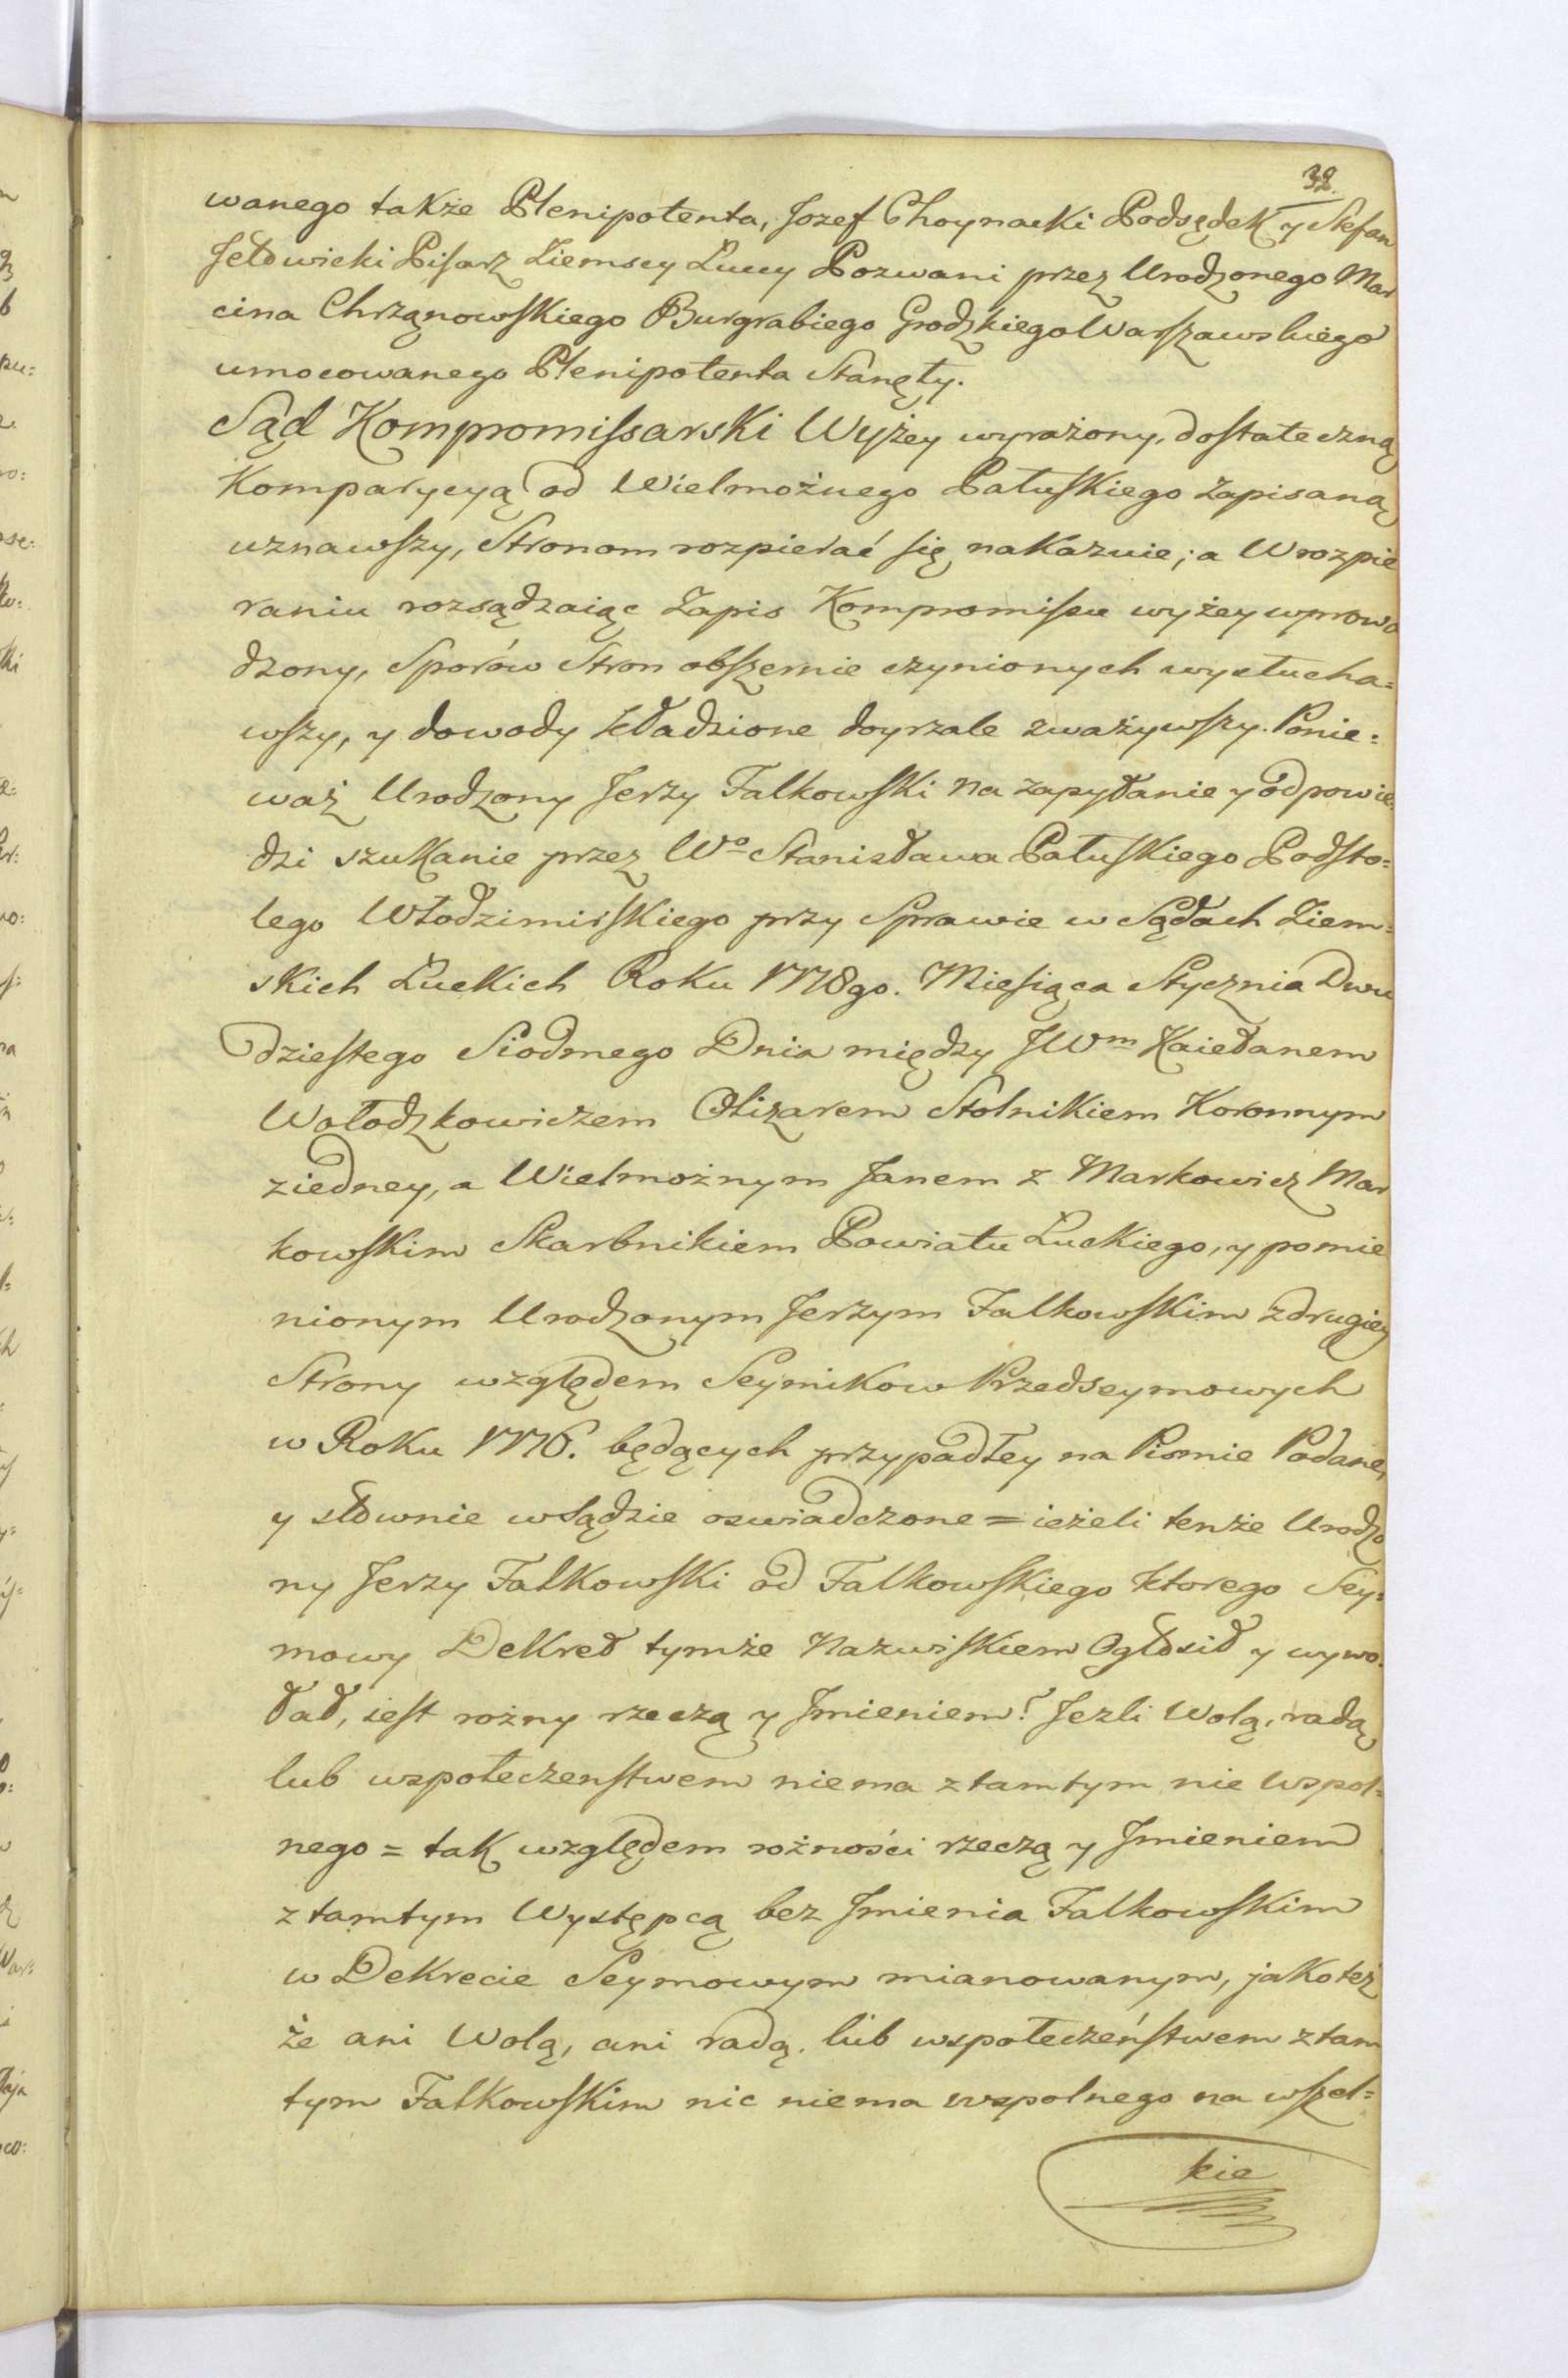 32.
wanego także Plenipotenta, Jozef Choynacki Podsędek y Stefan
Jełowicki Pisarz Ziemscy Łuccy Pozwani przez Urodzonego Mar
cina Chrzanowskiego Burgrabiego Grodzkiego Warszawskiego
umocowanego Plenipotenta Stanęły.
Sąd Kompromissarski Wyżey wyrażony, dostateczną
Komparycyą od Wielmożnego Pałuskiego zapisaną
uznawszy, Stronom rozpierać się nakazuie; a w rozpie
raniu rozsądzaiąc Zapis Kompromissu wyżey wprowa
dzony, Sporów Stron obszernie czynionych wysłucha=
wszy, y dowody kładzione doyrzale zważywszy. Ponie=
waż Urodzony Jerzy Falkowski na zapytanie y odpowie
dzi szukanie przez Wo Stanisława Pałuskiego Podsto=
lego Włodzimirskiego przy Sprawie w Sądach Ziem=
skich Łuckich Roku 1778go. Miesiąca Stycznia Dwu
dziestego Siodmego Dnia między JWm Kaietanem
Wołodzkowiczem Olizarem Stolnikiem Koronnym
ziedney, a Wielmożnym Janem z Markowicz Mar
kowskim Skarbnikiem Powiatu Łuckiego, y pomie
nionym Urodzonym Jerzym Falkowskim zdrugiey
Strony względem Seymikow Przedseymowych
w Roku 1776. będących przypadłey na Pismie Podane,
y słownie w Sądzie oswiadczone = ieżeli tenże Urodzo
ny Jerzy Falkowski od Falkowskiego ktorego Sey=
mowy Dekret tymże Nazwiskiem Ogłosił y wywo=
łał, iest rożny rzeczą y Jmieniem? Jezli Wolą, radą
lub wspołeczenstwem niema ztamtym nic wspol=
nego = tak względem rożności rzeczą y Jmieniem
z tamtym Występcą bez Jmienia Falkowskim
w Dekrecie Seymowym mianowanym, jako też
że ani Wolą, ani radą. lub wspołeczeństwem ztam
tym Falkowskim nic niema wspolnego na wszel=
kie